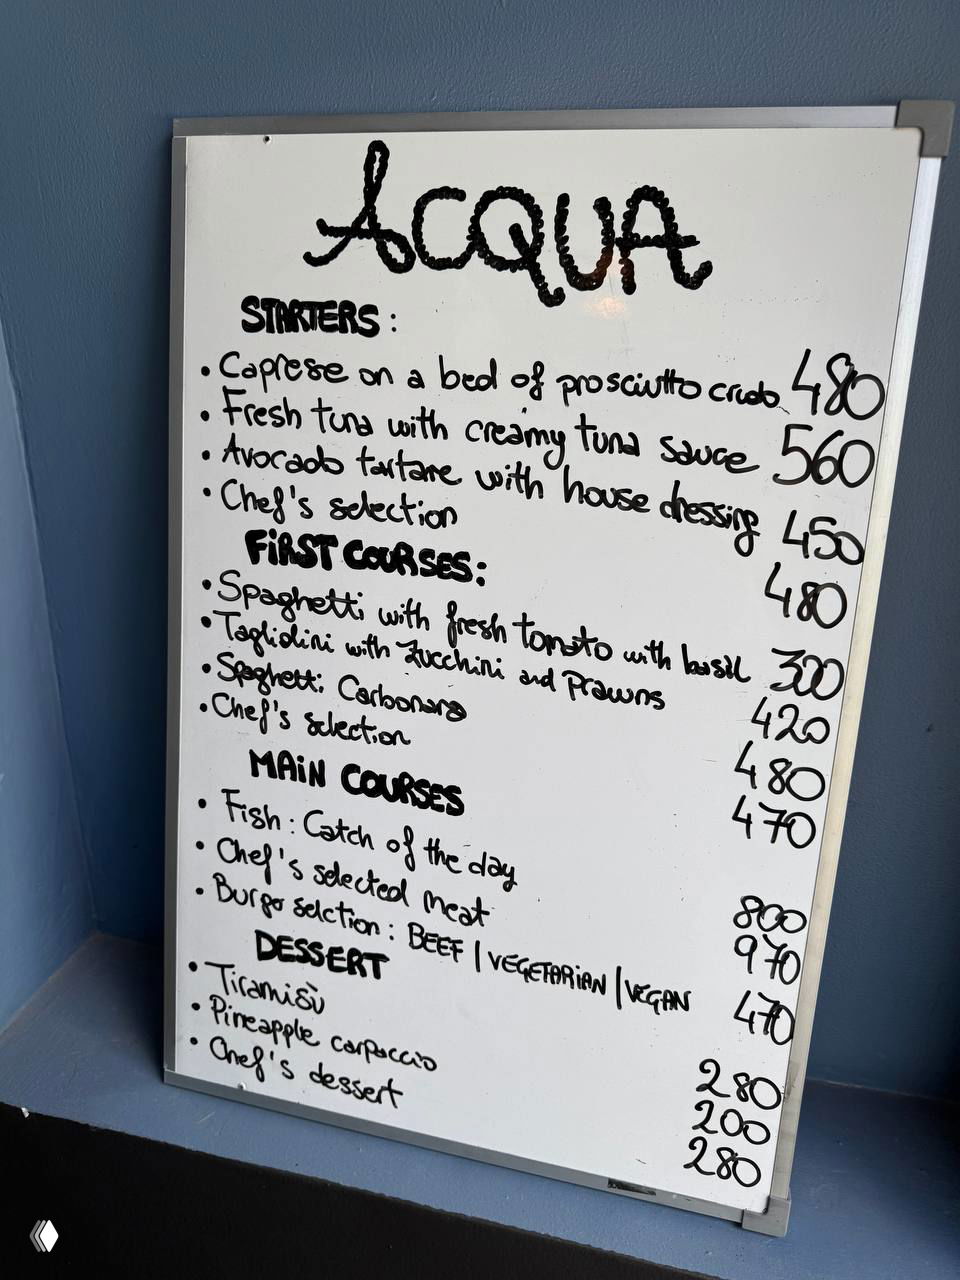 ACQUA
STARTERS:
• Caprese on a bed of prosciutto crudo 480
• Fresh tuna with creamy tuna sauce 560
• Avocado tartare with house dressing 450
• Chef's selection 480
FiRST COURSES:
• Spaghetti with fresh tomato with basil 300
• Tagliolini with Zucchini and Prawns 420
• Spaghetti Carbonara 480
• Chef's selection 470
MAiN COURSES
• Fish: Catch of the day 800
• Chef's selected meat 970
• Burger selction: BEEF | VEGETARIAN | VEGAN 470
DESSERT
• Tiramisù 280
• Pineapple carpaccio 200
• Chef's dessert 280